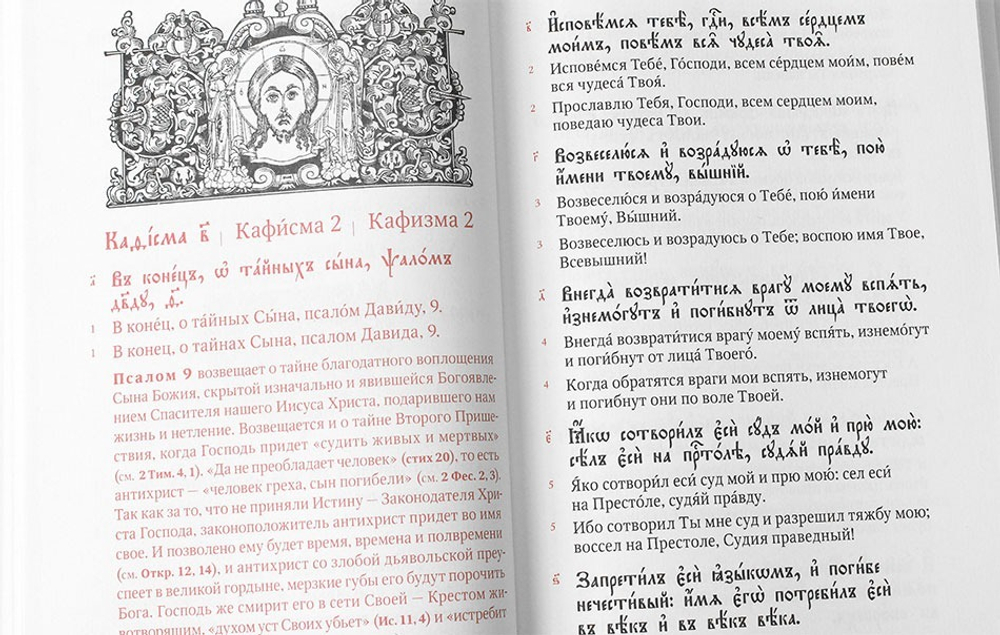 Каѳі́сма в҃ | Кафи́сма 2 | Кафизма 2
а҃ Въ коне́цъ, ѡ҆ та́йныхъ сы́на, ѱало́мъ
дв҃ду, ѳ҃.
1 В коне́ц, о та́йных Сы́на, псало́м Дави́ду, 9.
1 В конец, о тайнах Сына, псалом Давида, 9.
Псалом 9 возвещает о тайне благодатного воплощения
Сына Божия, скрытой изначально и явившейся Богоявле-
нием Спасителя нашего Иисуса Христа, подарившего нам
жизнь и нетление. Возвещается и о тайне Второго Прише-
ствия, когда Господь придет «судить живых и мертвых»
(см. 2 Тим. 4, 1). «Да не преобладает человек» (стих 20), то есть
антихрист — «человек греха, сын погибели» (см. 2 Фес. 2, 3).
Так как за то, что не приняли Истину — Законодателя Хри-
ста Господа, законоположитель антихрист придет во имя
свое. И позволено ему будет время, времена и полвремени
(см. Откр. 12, 14), и антихрист со злобой дьявольской преу-
спеет в великой гордыне, мерзкие губы его будут порочить
Бога. Господь же смирит его в сети Своей — Крестом жи-
вотворящим, «духом уст Своих убьет» (Ис. 11, 4) и «истребит
в҃ И҆сповѣ́мсѧ тебѣ̀, гдⷭ҇и, всѣ́мъ се́рдцемъ
мои́мъ, повѣ́мъ всѧ̑ чꙋдеса̀ твоѧ̑.
2 Испове́мся Тебе́, Го́споди, всем се́рдцем мои́м, пове́м
вся чудеса́ Твоя́.
2 Прославлю Тебя, Господи, всем сердцем моим,
поведаю чудеса Твои.
г҃ Возвеселю́сѧ и҆ возра́дꙋюсѧ ѡ҆ тебѣ̀, пою̀
и҆́мени твоемꙋ̀, вы́шнїй.
3 Возвеселю́ся и возра́дуюся о Тебе́, пою́ и́мени
Твоему́, Вы́шний.
3 Возвеселюсь и возрадуюсь о Тебе; воспою имя Твое,
Всевышний!
д҃ Внегда̀ возврати́тисѧ врагꙋ̀ моемꙋ̀ вспѧ́ть,
и҆знемо́гꙋтъ и҆ поги́бнꙋтъ ѿ лица̀ твоегѡ̀.
4 Внегда́ возврати́тися врагу́ моему́ вспять, изнемо́гут
и поги́бнут от лица́ Твоего́.
4 Когда обратятся враги мои вспять, изнемогут
и погибнут они по воле Твоей.
є҃ Ꙗ҆́кѡ сотвори́лъ є҆сѝ сꙋ́дъ мо́й и҆ прю̀ мою̀:
сѣ́лъ є҆сѝ на прⷭ҇то́лѣ, сꙋдѧ́й пра́вдꙋ.
5 Я́ко сотвори́л еси́ суд мой и прю мою́: сел еси́
на Престо́ле, судя́й пра́вду.
5 Ибо сотворил Ты мне суд и разрешил тяжбу мою;
воссел на Престоле, Судия праведный!
ѕ҃ Запрети́лъ є҆сѝ ꙗ҆зы́кѡмъ, и҆ поги́бе
нечести́вый: и҆́мѧ є҆гѡ̀ потреби́лъ є҆сѝ
въ вѣ́къ и҆ въ вѣ́къ вѣ́ка.